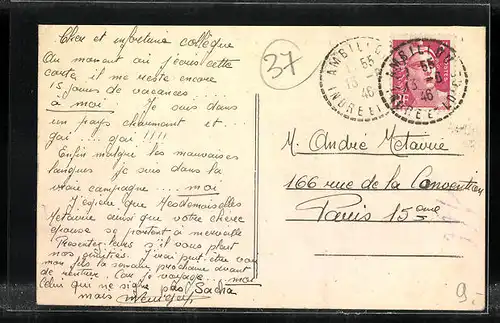 Cher et infortune collègue
Au moment où j'écris cette
carte il me reste encore
15 jours de vacances ....
à moi. Je suis dans
un pays charmant et ..
gai ... gai !!!!
Enfin malgré les mauvaises
langues je suis dans la
vraie campagne .... moi
J'espère que Mesdemoiselles
Metairie ainsi que votre chère
épouse se portent à merveille
Présentez leurs s'il vous plaît
nos amitiés. J'irai peut être
mon fils la semaine prochaine avant
de rentrer. Car je voyage ... moi
Celui qui ne signe pas Sacha
mais
37
AMBILLOU
13 -8
46
INDRE ET
AMBILLOU
55
13 -8
46
INDRE
M. Andre Metairie
166 rue de la Convention
Paris 15ème
9.-